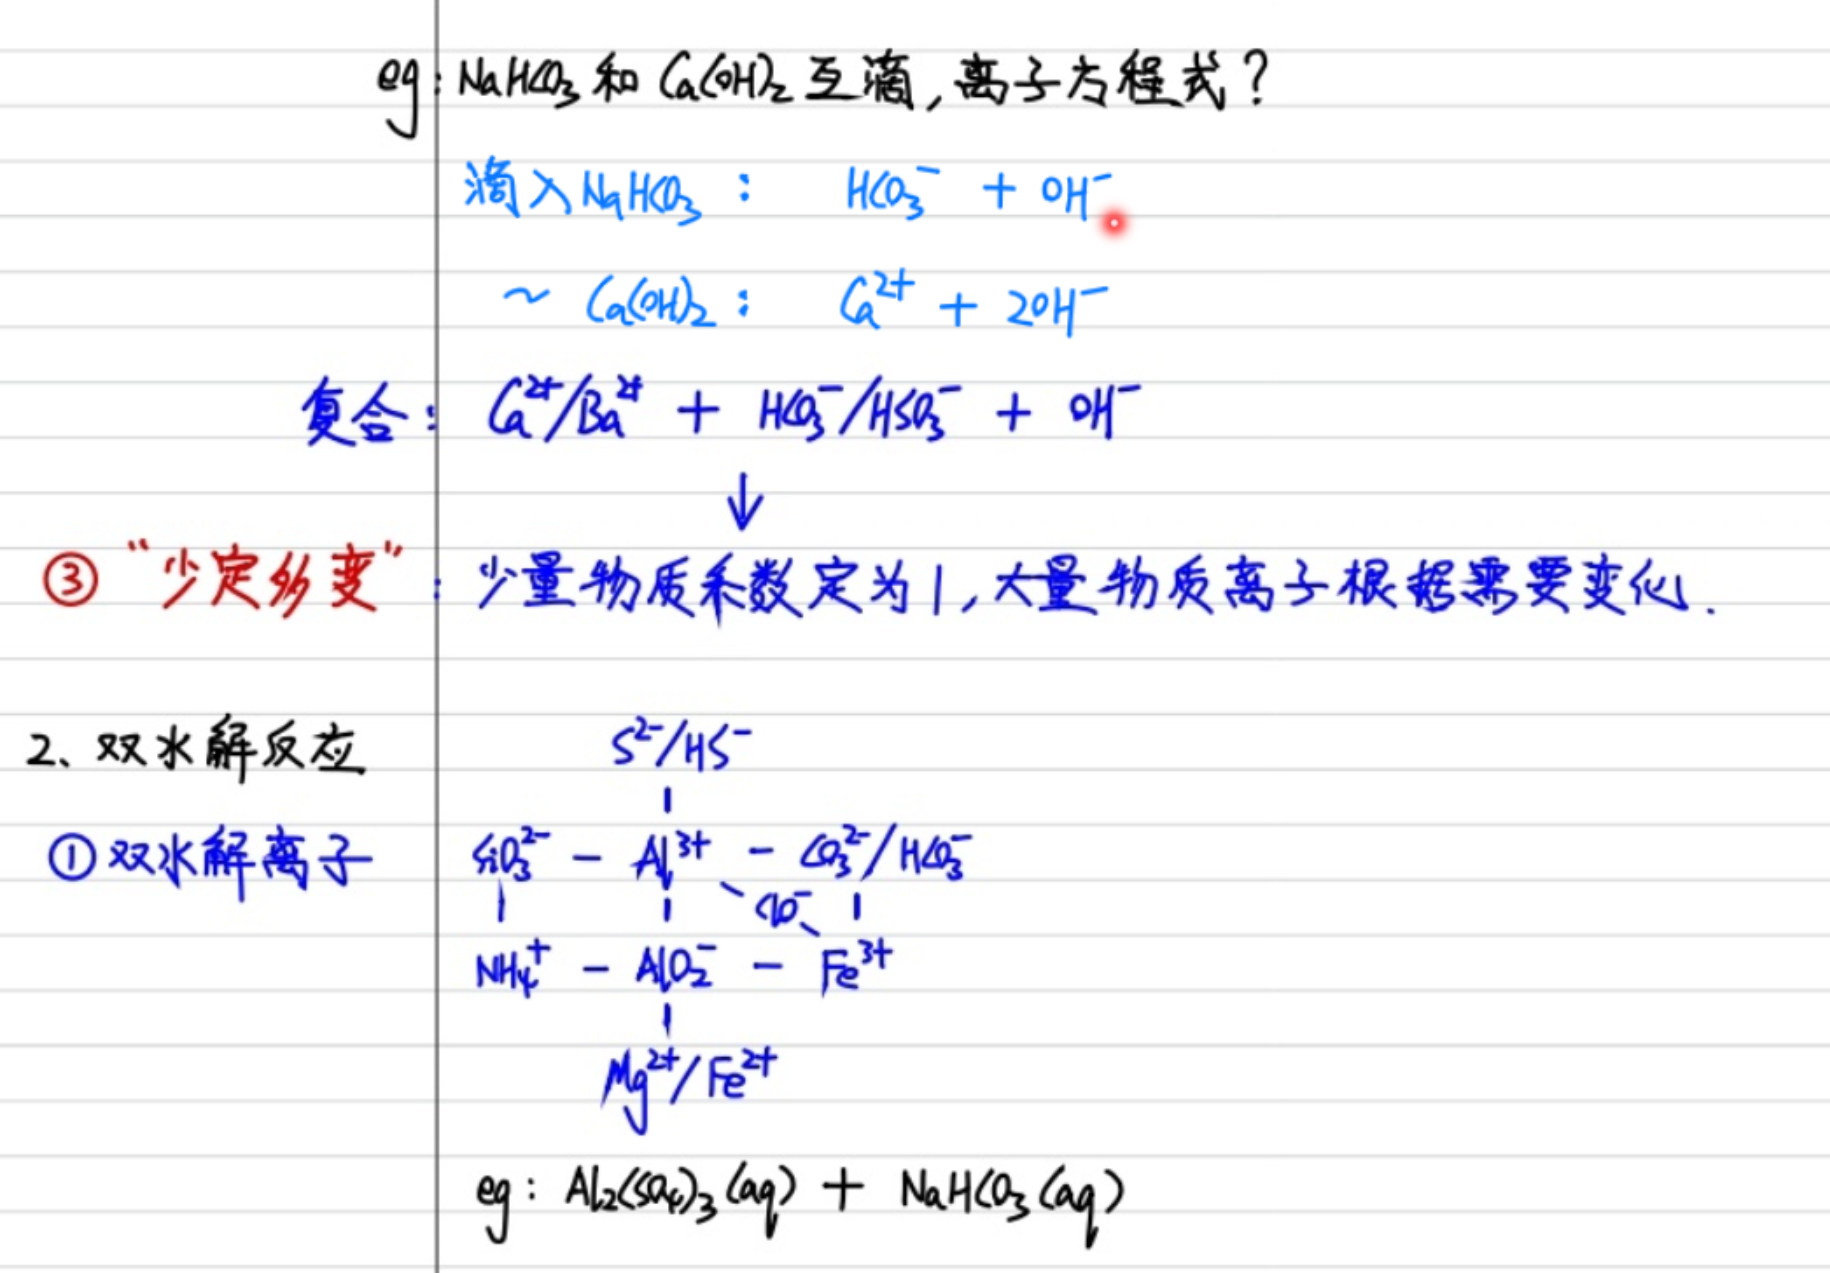 eg: NaHCO₃ 和 Ca(OH)₂ 互滴,离子方程式?
滴入 NaHCO₃ : HCO₃⁻ + OH⁻
~ Ca(OH)₂ : Ca²⁺ + 2OH⁻
复合: Ca²⁺/Ba²⁺ + HCO₃⁻/HSO₃⁻ + OH⁻
↓
③ “少定多变”: 少量物质系数定为1,大量物质离子根据需要变化.
2、双水解反应
S²⁻/HS⁻
①双水解离子 SiO₃²⁻ - Al³⁺ - CO₃²⁻/HCO₃⁻
ClO⁻
NH₄⁺ - AlO₂⁻ - Fe³⁺
Mg²⁺/Fe²⁺
eg: Al₂(SO₄)₃(aq) + NaHCO₃(aq)